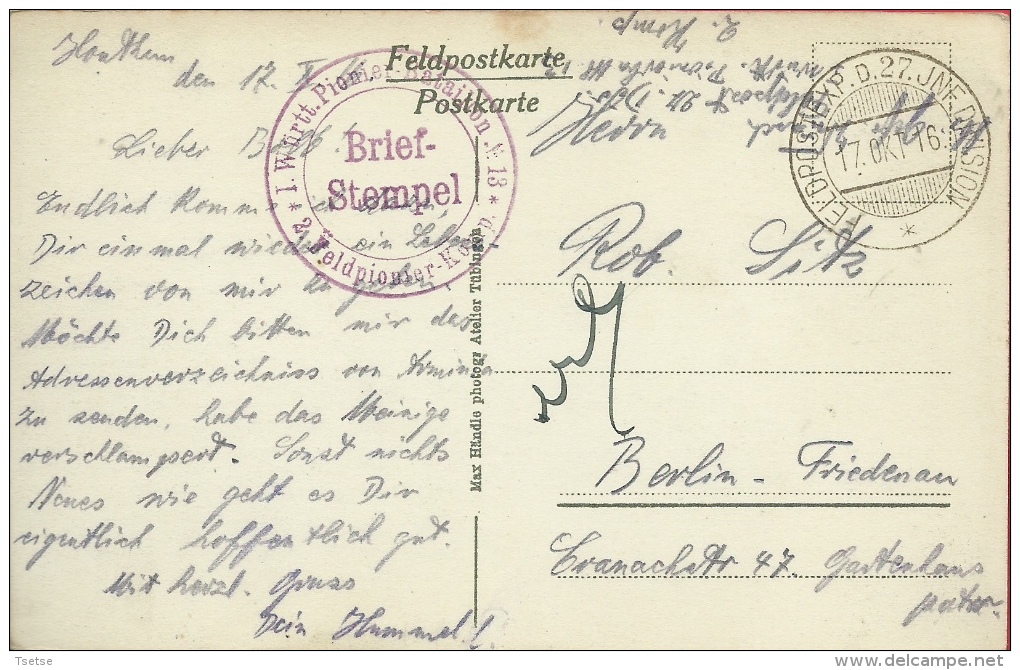 Feldpostkarte
Postkarte
Houthem
den 17. X.
Lieber
Endlich komm ich dazu,
Dir einmal wieder ein Lebens
zeichen von mir zu geben.
Möchte Dich bitten mir das
Adressenverzeichniss von Arminia
zu senden, habe das Meinige
verschlampert. Sonst nichts
Neues wie geht es Dir
eigentlich hoffentlich gut.
Mit herzl. Gruss
Dein Hummel.
* I. Württ. Pionier-Bataillon № 13 *
Brief-
Stempel
2. Feldpionier-Komp.
Max Händle photogr. Atelier Tübingen
2. Komp.
Württ. Pionierbtl. Nr 13
FELDPOSTEXP. D. 27. INF. DIVISION
17. OKT 16.
*
Herrn
Rob. Sitz
Berlin - Friedenau
Cranachstr 47. Gartenhaus
parterr.
Tsetse
delcampe.net